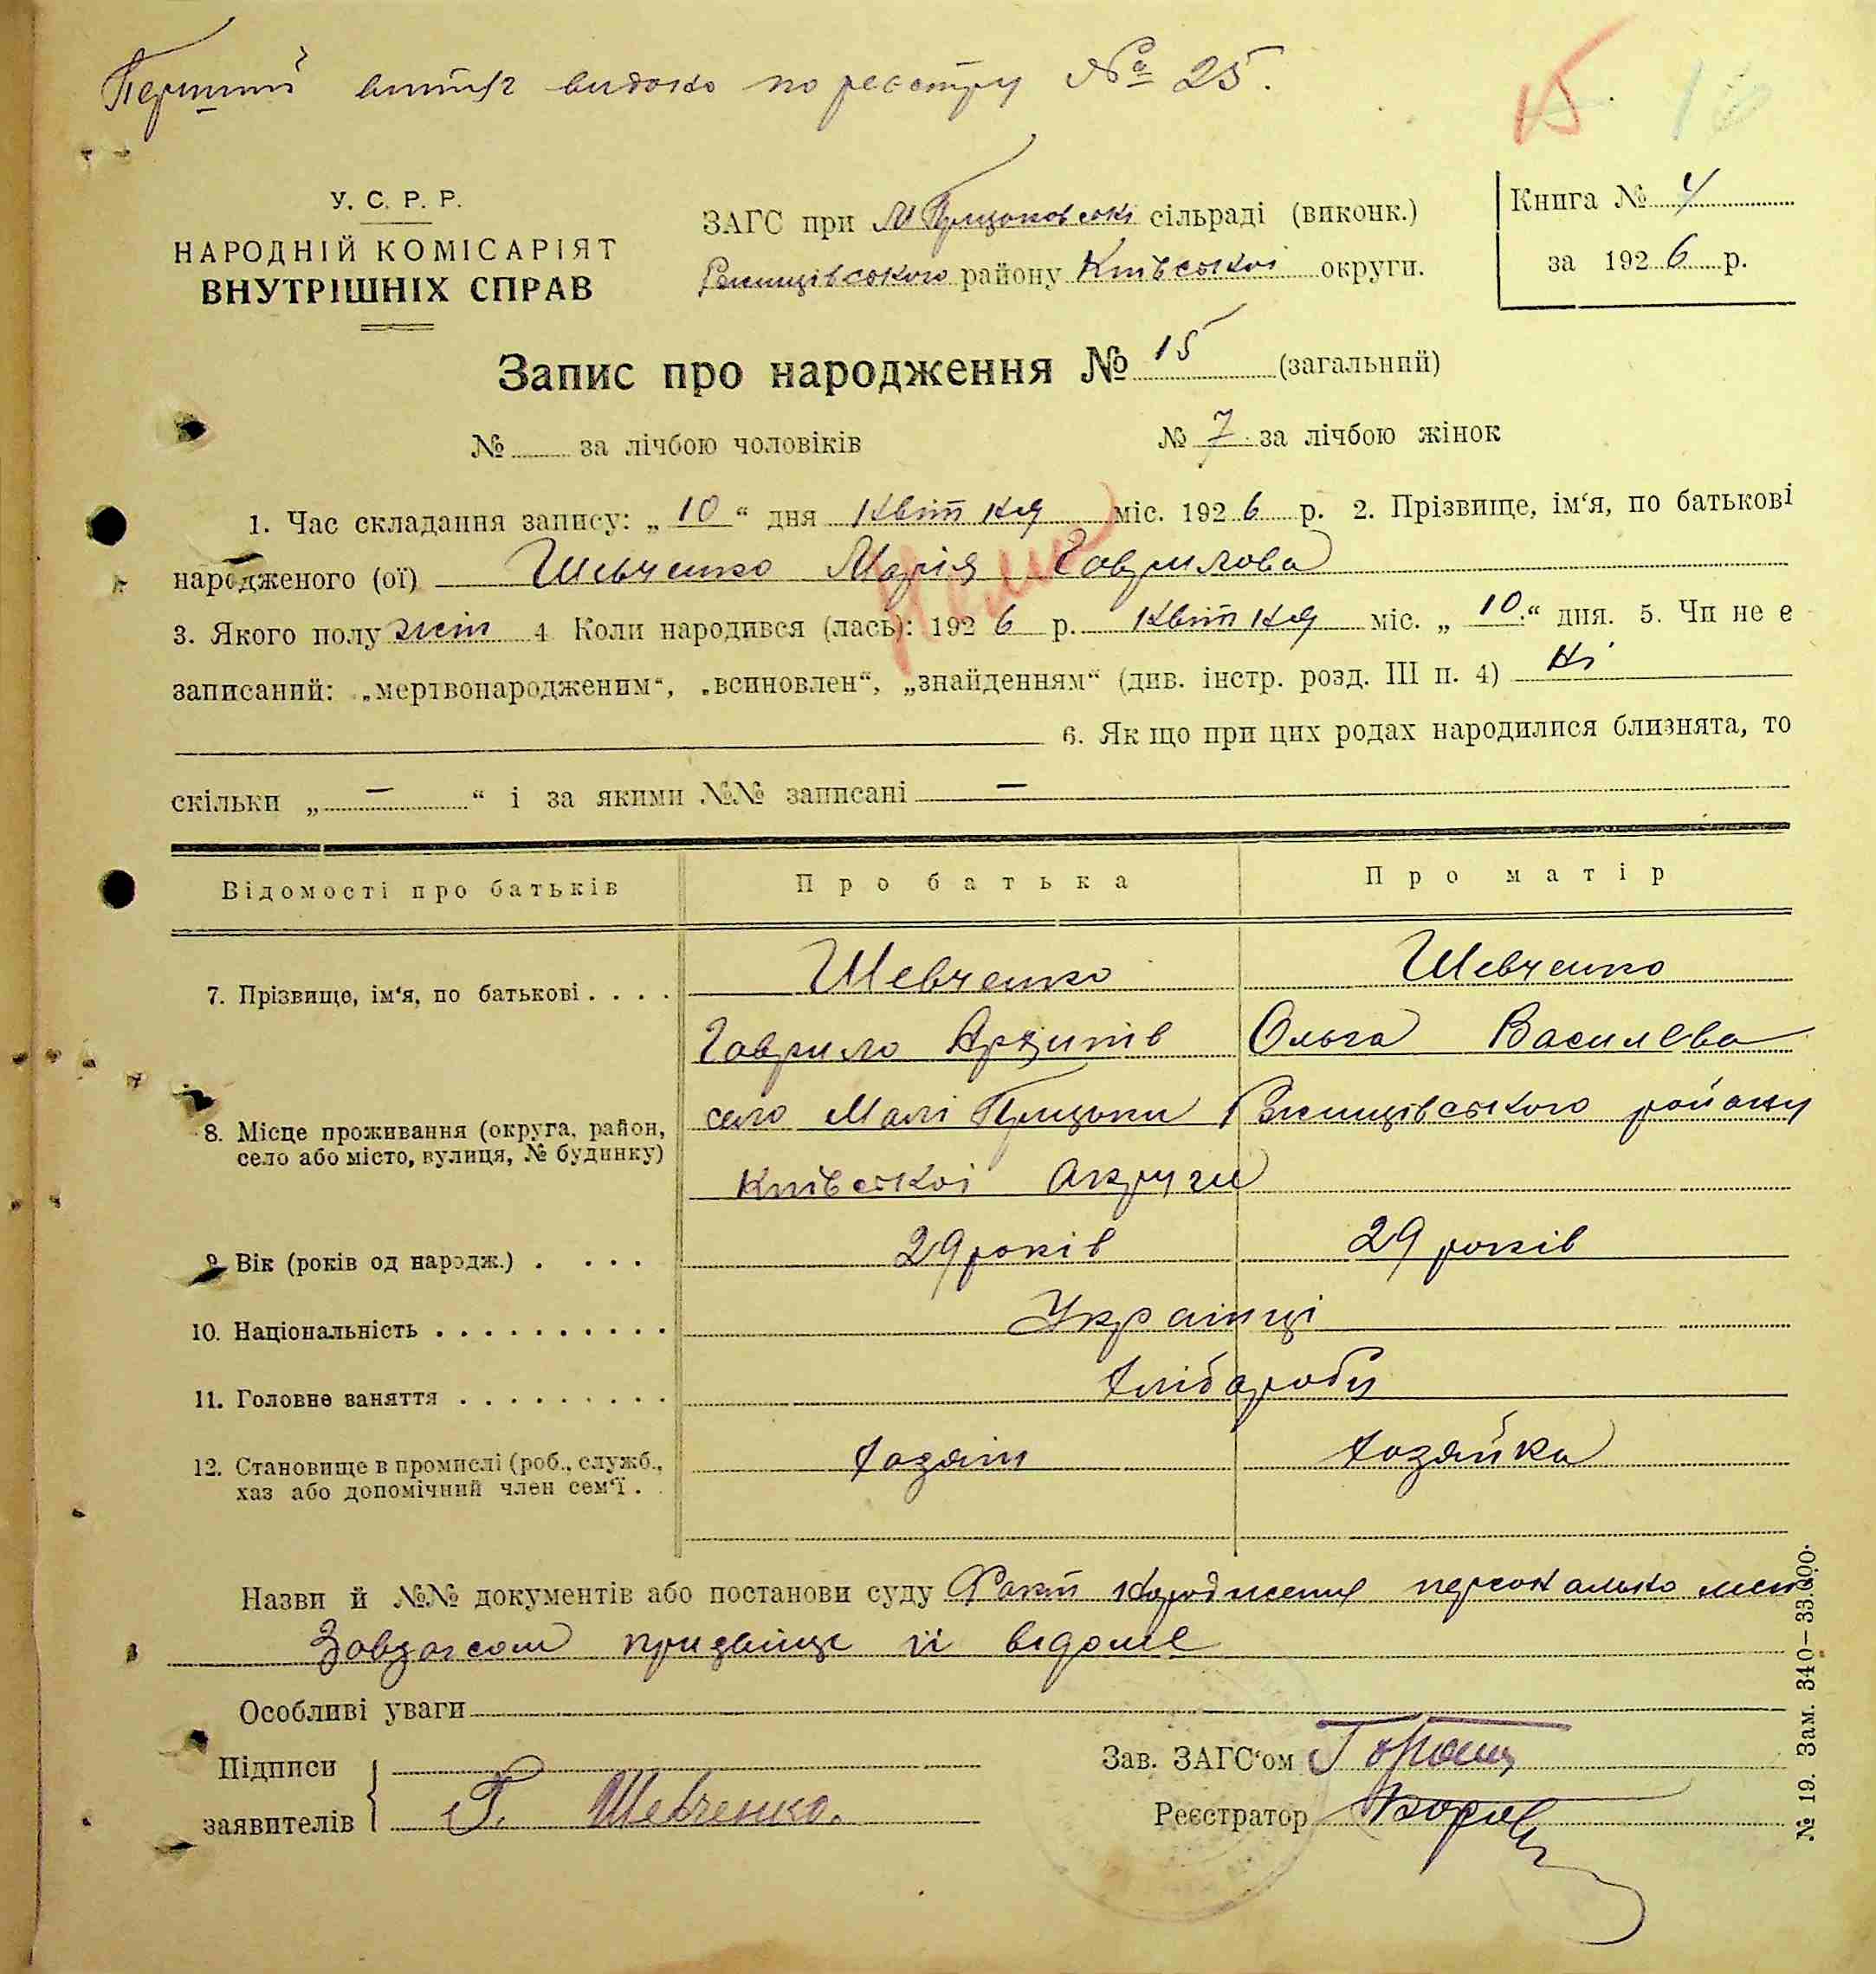 Перший витяг видано по реєстру № 25.
15
У. С. Р. Р.
НАРОДНІЙ КОМІСАРІЯТ
ВНУТРІШНІХ СПРАВ
ЗАГС при М Прицьковській сільраді (виконк.)
Ржищівського району Київської округи.
Книга № 4
за 1926 р.
Запис про народження № 15 (загальний)
№ за лічбою чоловіків № 7 за лічбою жінок
1. Час складання запису: „10“ дня Квітня міс. 1926 р. 2. Прізвище, ім‘я, по батькові
народженого (ої) Шевченко Марія Гаврилова
3. Якого полу жін 4 Коли народився (лась): 1926 р. Квітня міс. „10.“ дня. 5. Чи не є
записаний: „мертвонародженим“, „всиновлен“, „знайденням“ (див. інстр. розд. III п. 4) Ні
6. Як що при цих родах народилися близнята, то
скільки „ — “ і за якими №№ записані —
Відомості про батьків Про батька Про матір
7. Прізвище, ім‘я, по батькові . . . . Шевченко Шевченко
Гаврило Архипів Ольга Василєва
8. Місце проживання (округа, район, село Малі Прицьки Ржищівського району
село або місто, вулиця, № будинку)
Київської Округи
9. Вік (років од народж.) . . . . 29 років 29 років
10. Національність . . . . . . . . . . Українці
11. Головне заняття . . . . . . . . . Хлібароби
12. Становище в промислі (роб., служб., Хозяїн Хозяйка
хаз або допомічний член сем‘ї . .
Назви й №№ документів або постанови суду Факт народження персонально мені
Завзагсом прізвище її відоме
Особливі уваги
Підписи
заявителів
Г. Шевченко.
Зав. ЗАГС‘ом
Реєстратор
№ 19. Зам. 340—33.000.